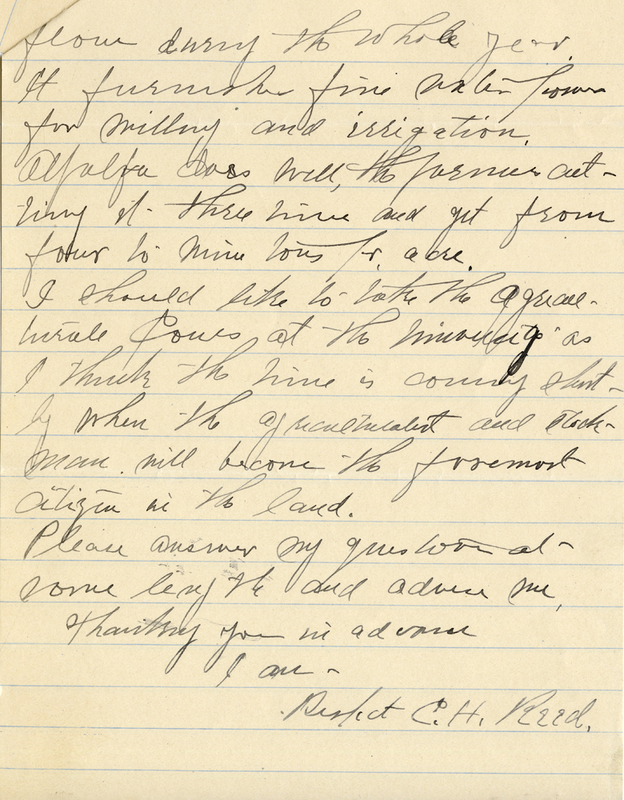 flow during the whole year.
It furnishes fine water power
for milling and irrigation.
Alfalfa does well, the farmers cut-
ting it three times and get from
four to nine tons pr. acre.
I should like to take the Agricul-
turale Course at the University as
I think the time is coming short-
ly when the agriculturalist and stock-
man will become the foremost
citizen in the land.
Please answer my question at-
some length and advise me,
Thanking you in advance
I am -
C. H. Reed.